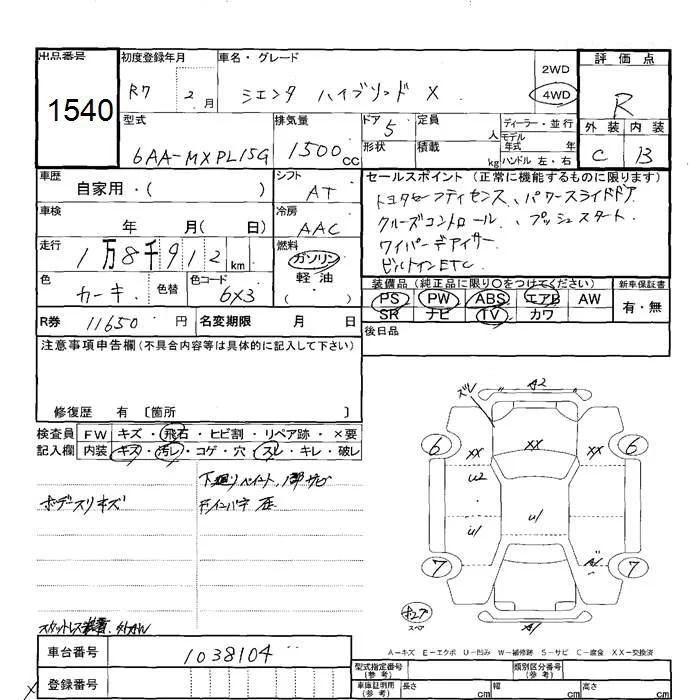 出品番号 初度登録年月 車名・グレード 評価点
1540 R7 2月 シエンタ ハイブリッド X 2WD 4WD R
型式 排気量 ドア 5 定員 人 ディーラー・並行 外装 内装
6AA-MXPL15G 1500cc 形状 積載 kg モデル年式 年 ハンドル 左・右 C B
車歴 シフト セールスポイント(正常に機能するものに限ります)
自家用・( ) AT トヨタセーフティセンス、パワースライドドア
車検 冷房 クルーズコントロール、プッシュスタート
年 月( 日) AAC ワイパーデアイサー
走行 燃料 ビルトインETC
1万8千912km ガソリン 軽油 ( )
色 カーキ 色替 色コード 6X3 装備品(純正品に限り○をつけてください) 新車保証書
PS PW ABS エアB AW 有・無
SR ナビ TV カワ
R券 11650円 名変期限 月 日 後日品
注意事項申告欄(不具合内容等は具体的に記入して下さい)
修復歴 有 〔箇所 〕
検査員 FW キズ・飛石・ヒビ割・リペア跡・×要
記入欄 内装 キズ・汚レ・コゲ・穴・スレ・キレ・破レ
下廻りペイント、1部サビ
ボデースリキズ
ズレ A2
6 XX XX XX 6
U2
U1 U1 A1
7 7
スペア A1
A-キズ E-エクボ U-凹み W-補修跡 S-サビ C-腐食 XX-交換済
車台番号 1038104
登録番号
型式指定番号(参考) 類別区分番号(参考)
車庫証明用(参考) 長さ cm 幅 cm 高さ cm